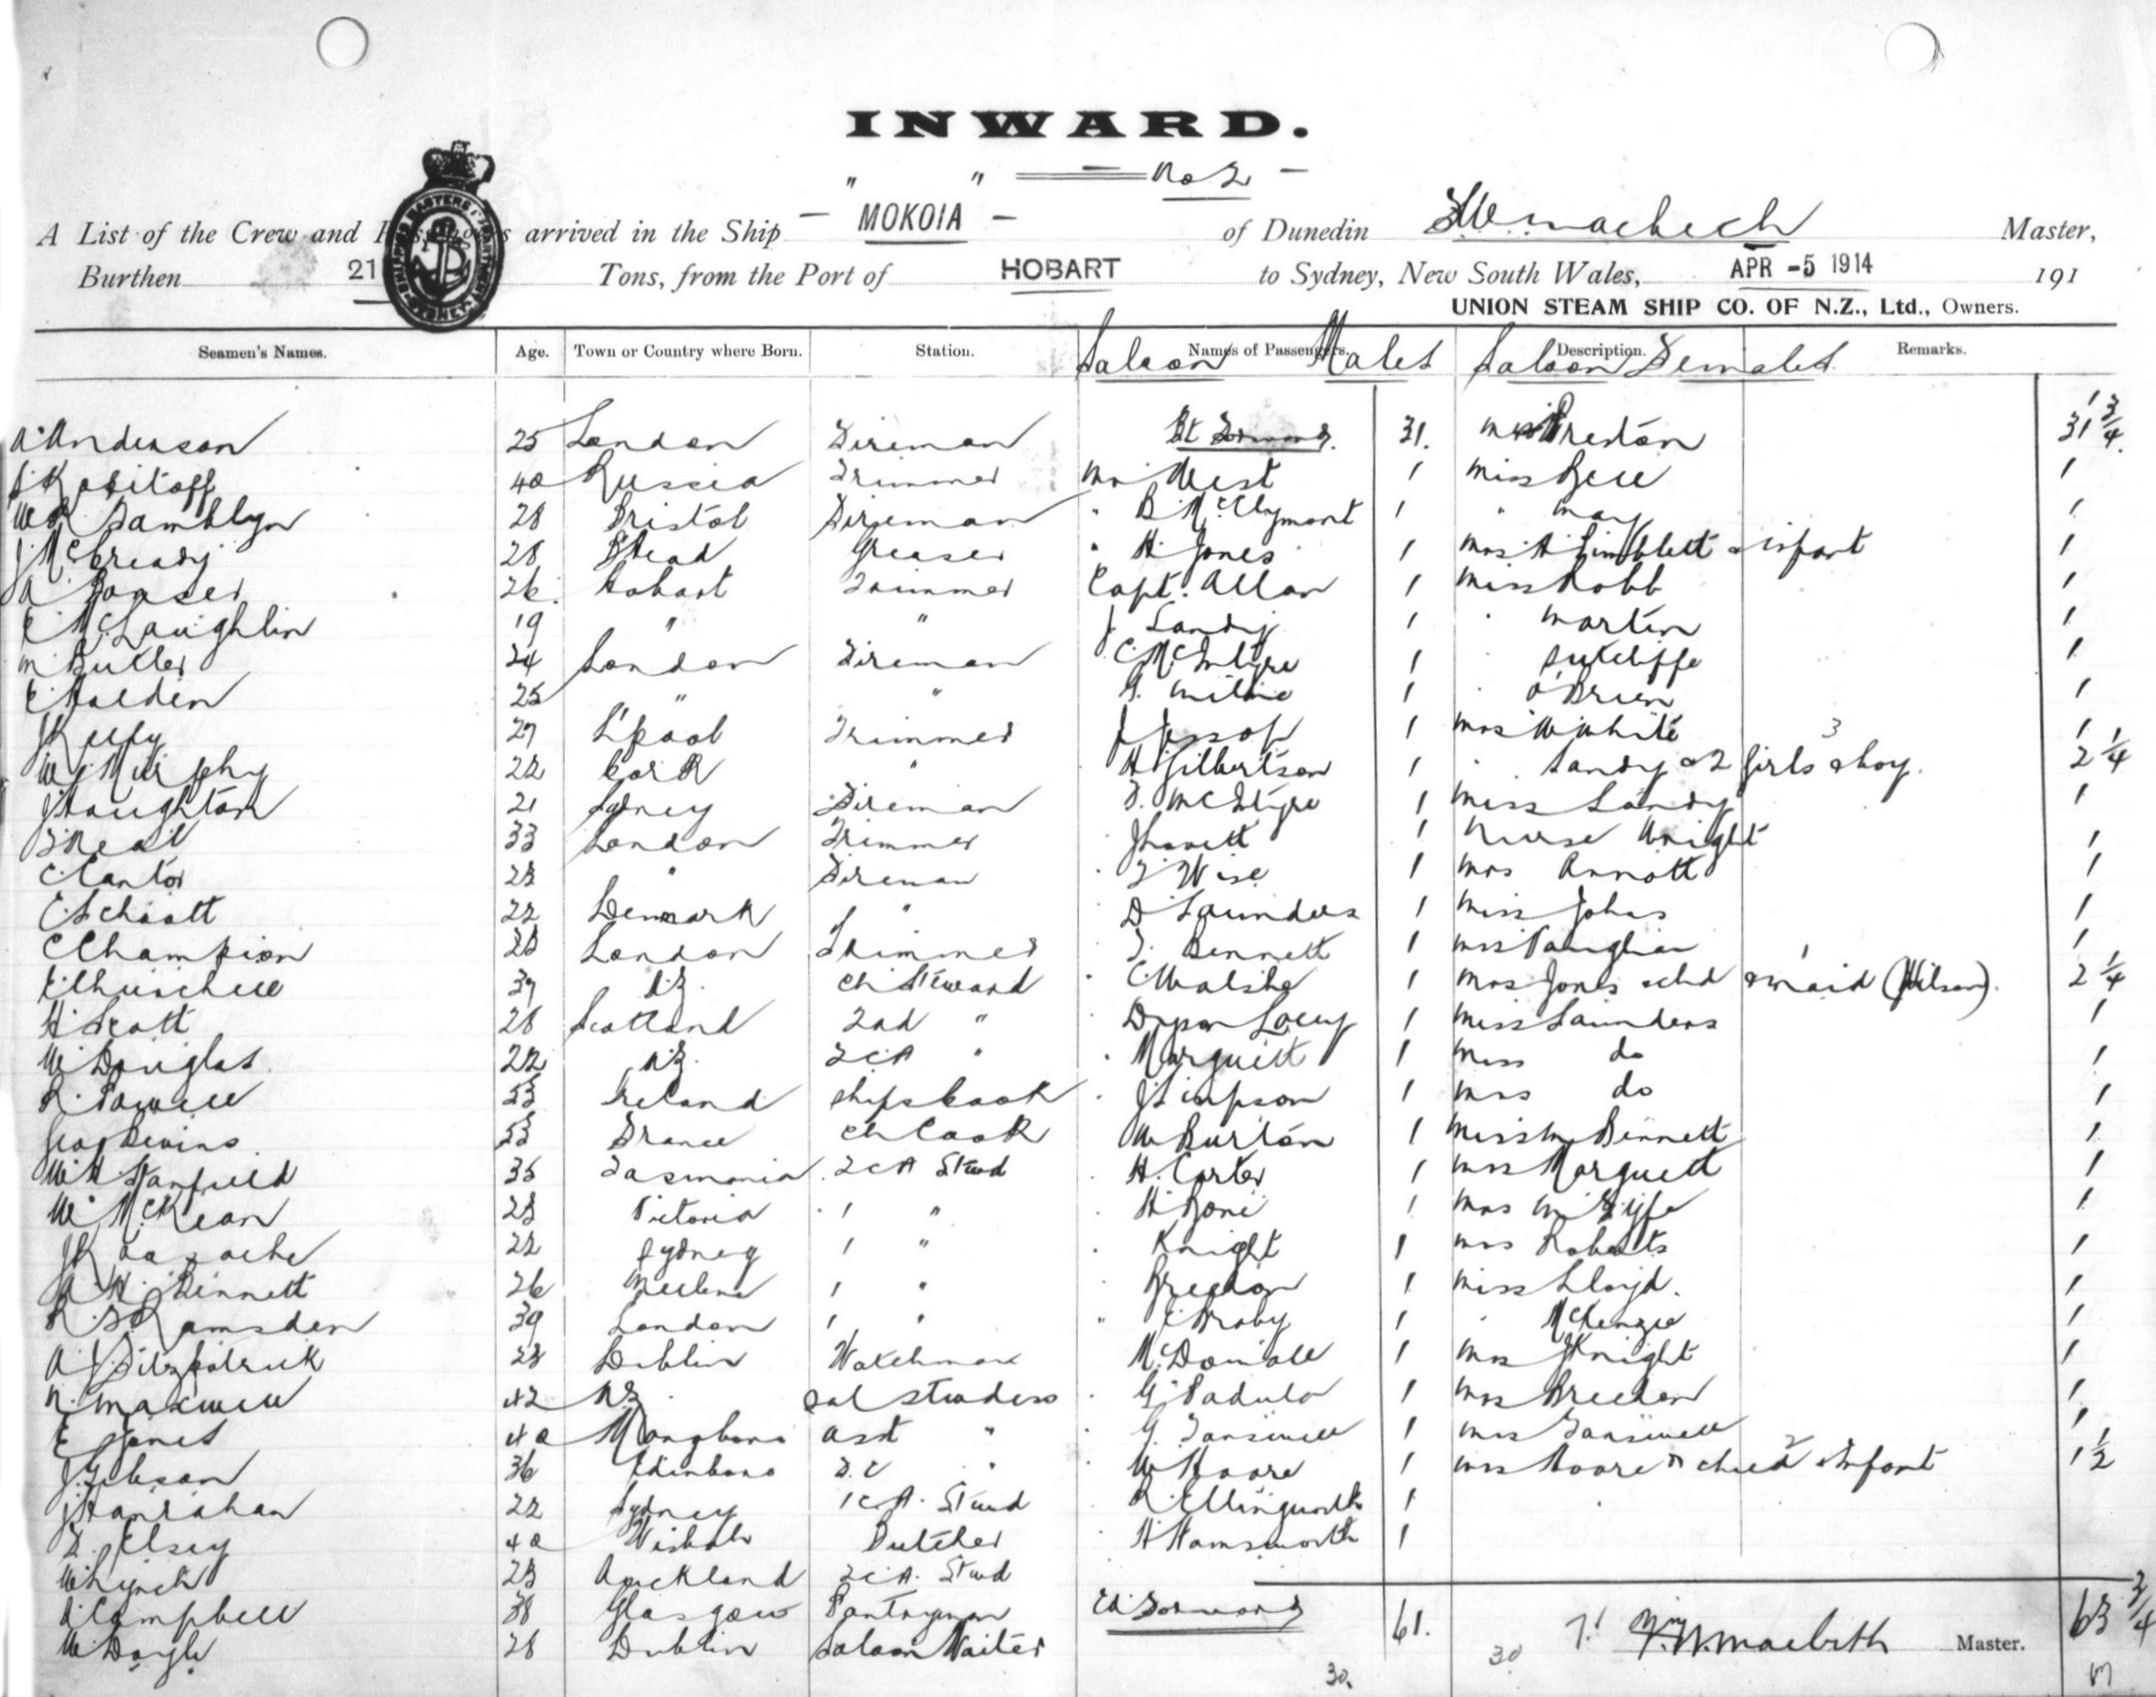 INWARD.
" " No 2
A List of the Crew and Passengers arrived in the Ship MOKOIA of Dunedin Master,
Burthen 21 Tons, from the Port of HOBART to Sydney, New South Wales, APR -5 1914 191
UNION STEAM SHIP CO. OF N.Z., Ltd., Owners.
Seamen's Names. Age. Town or Country where Born. Station. Names of Passengers. Description. Remarks.
Saloon Males Saloon Females
A Anderson 25 London Fireman Bt Forward. 31. Preston 31 3/4
40 Russia Trimmer Mr West 1 Miss Bell 1
W R Tamblyn 28 Bristol Fireman " B McClymont 1 " May 1
J McCready 28 B'Head Greaser " H Jones 1 Mrs A Gimblett & infant 1
26 Hobart Trimmer Capt. Allan 1 Miss Robb 1
E McLaughlin 19 " " J Landy 1 " Martin 1
M Butler 24 London Fireman C McIntyre 1 " Sutcliffe 1
E Holden 25 " " 1 " O'Brien 1
J Keefy 27 L'pool Trimmer J Jessop 1 Mrs W White 1
W J Murphy 22 Cork " H Gilbertson 1 " Landy & 2 girls 3 & boy. 2 1/4
J Haughton 21 Sydney Fireman F. McIntyre 1 Miss Landy 1
F Neal 33 London Trimmer J Lovett 1 Nurse Wright 1
C. Cantor 23 " Fireman " F Wise 1 Mrs Annott 1
E. Schaatt 22 Denmark " D Saunders 1 Miss Johns 1
C Champion 23 London Trimmer F. Bennett 1 Mrs Vaughan 1
E Churchill 37 N.Z. Ch Steward " C Walshe 1 Mrs Jones & chd 1 & maid (Wilson). 2 1/4
H Scott 28 Scotland 2nd " Lacey 1 Miss Saunders 1
W Douglas 22 N.Z. 2CA " " Marquitt 1 Miss do 1
R. Powell 53 Ireland Ships Cook " J Simpson 1 Mrs do 1
Geo Devins 53 France Ch Cook W Burton 1 Miss M Bennett 1
W H Stanfield 35 Tasmania 2CA Stwd H. Carter 1 Mrs Marquett 1
W. McKean 23 Victoria " " H Bone 1 Mrs W Fyfe 1
22 Sydney " " " Knight 1 Mrs Roberts 1
A. W. Bennett 26 Melbne " " " Breedon 1 Miss Lloyd. 1
R. S Ramsden 39 London " " " E Braby 1 " McKenzie 1
A J Fitzpatrick 23 Dublin Watchman McDonald 1 Mrs J Knight 1
N. Maxwell 42 N.Z. Sal Stewdess " G Padula 1 Mrs Breedon 1
E Jones 40 Asst " " G. Tanswell 1 Mrs Tanswell 1
J. Gibson 36 Edinboro S.C " " W Moore 1 Mrs Moore & child 2 & Infant 1 1/2
J Hanrahan 22 Sydney 1CA. Stwd R. Ellingworth 1
F. Elsey 40 Wisbeh Butcher " H Hamsworth 1
W Lynch 23 Auckland 2CA. Stwd
A Campbell 38 Glasgow Pantryman Cd Forward 61. 63 3/4
W Doyle 28 Dublin Saloon Waiter W Macbeth Master.
30. 30